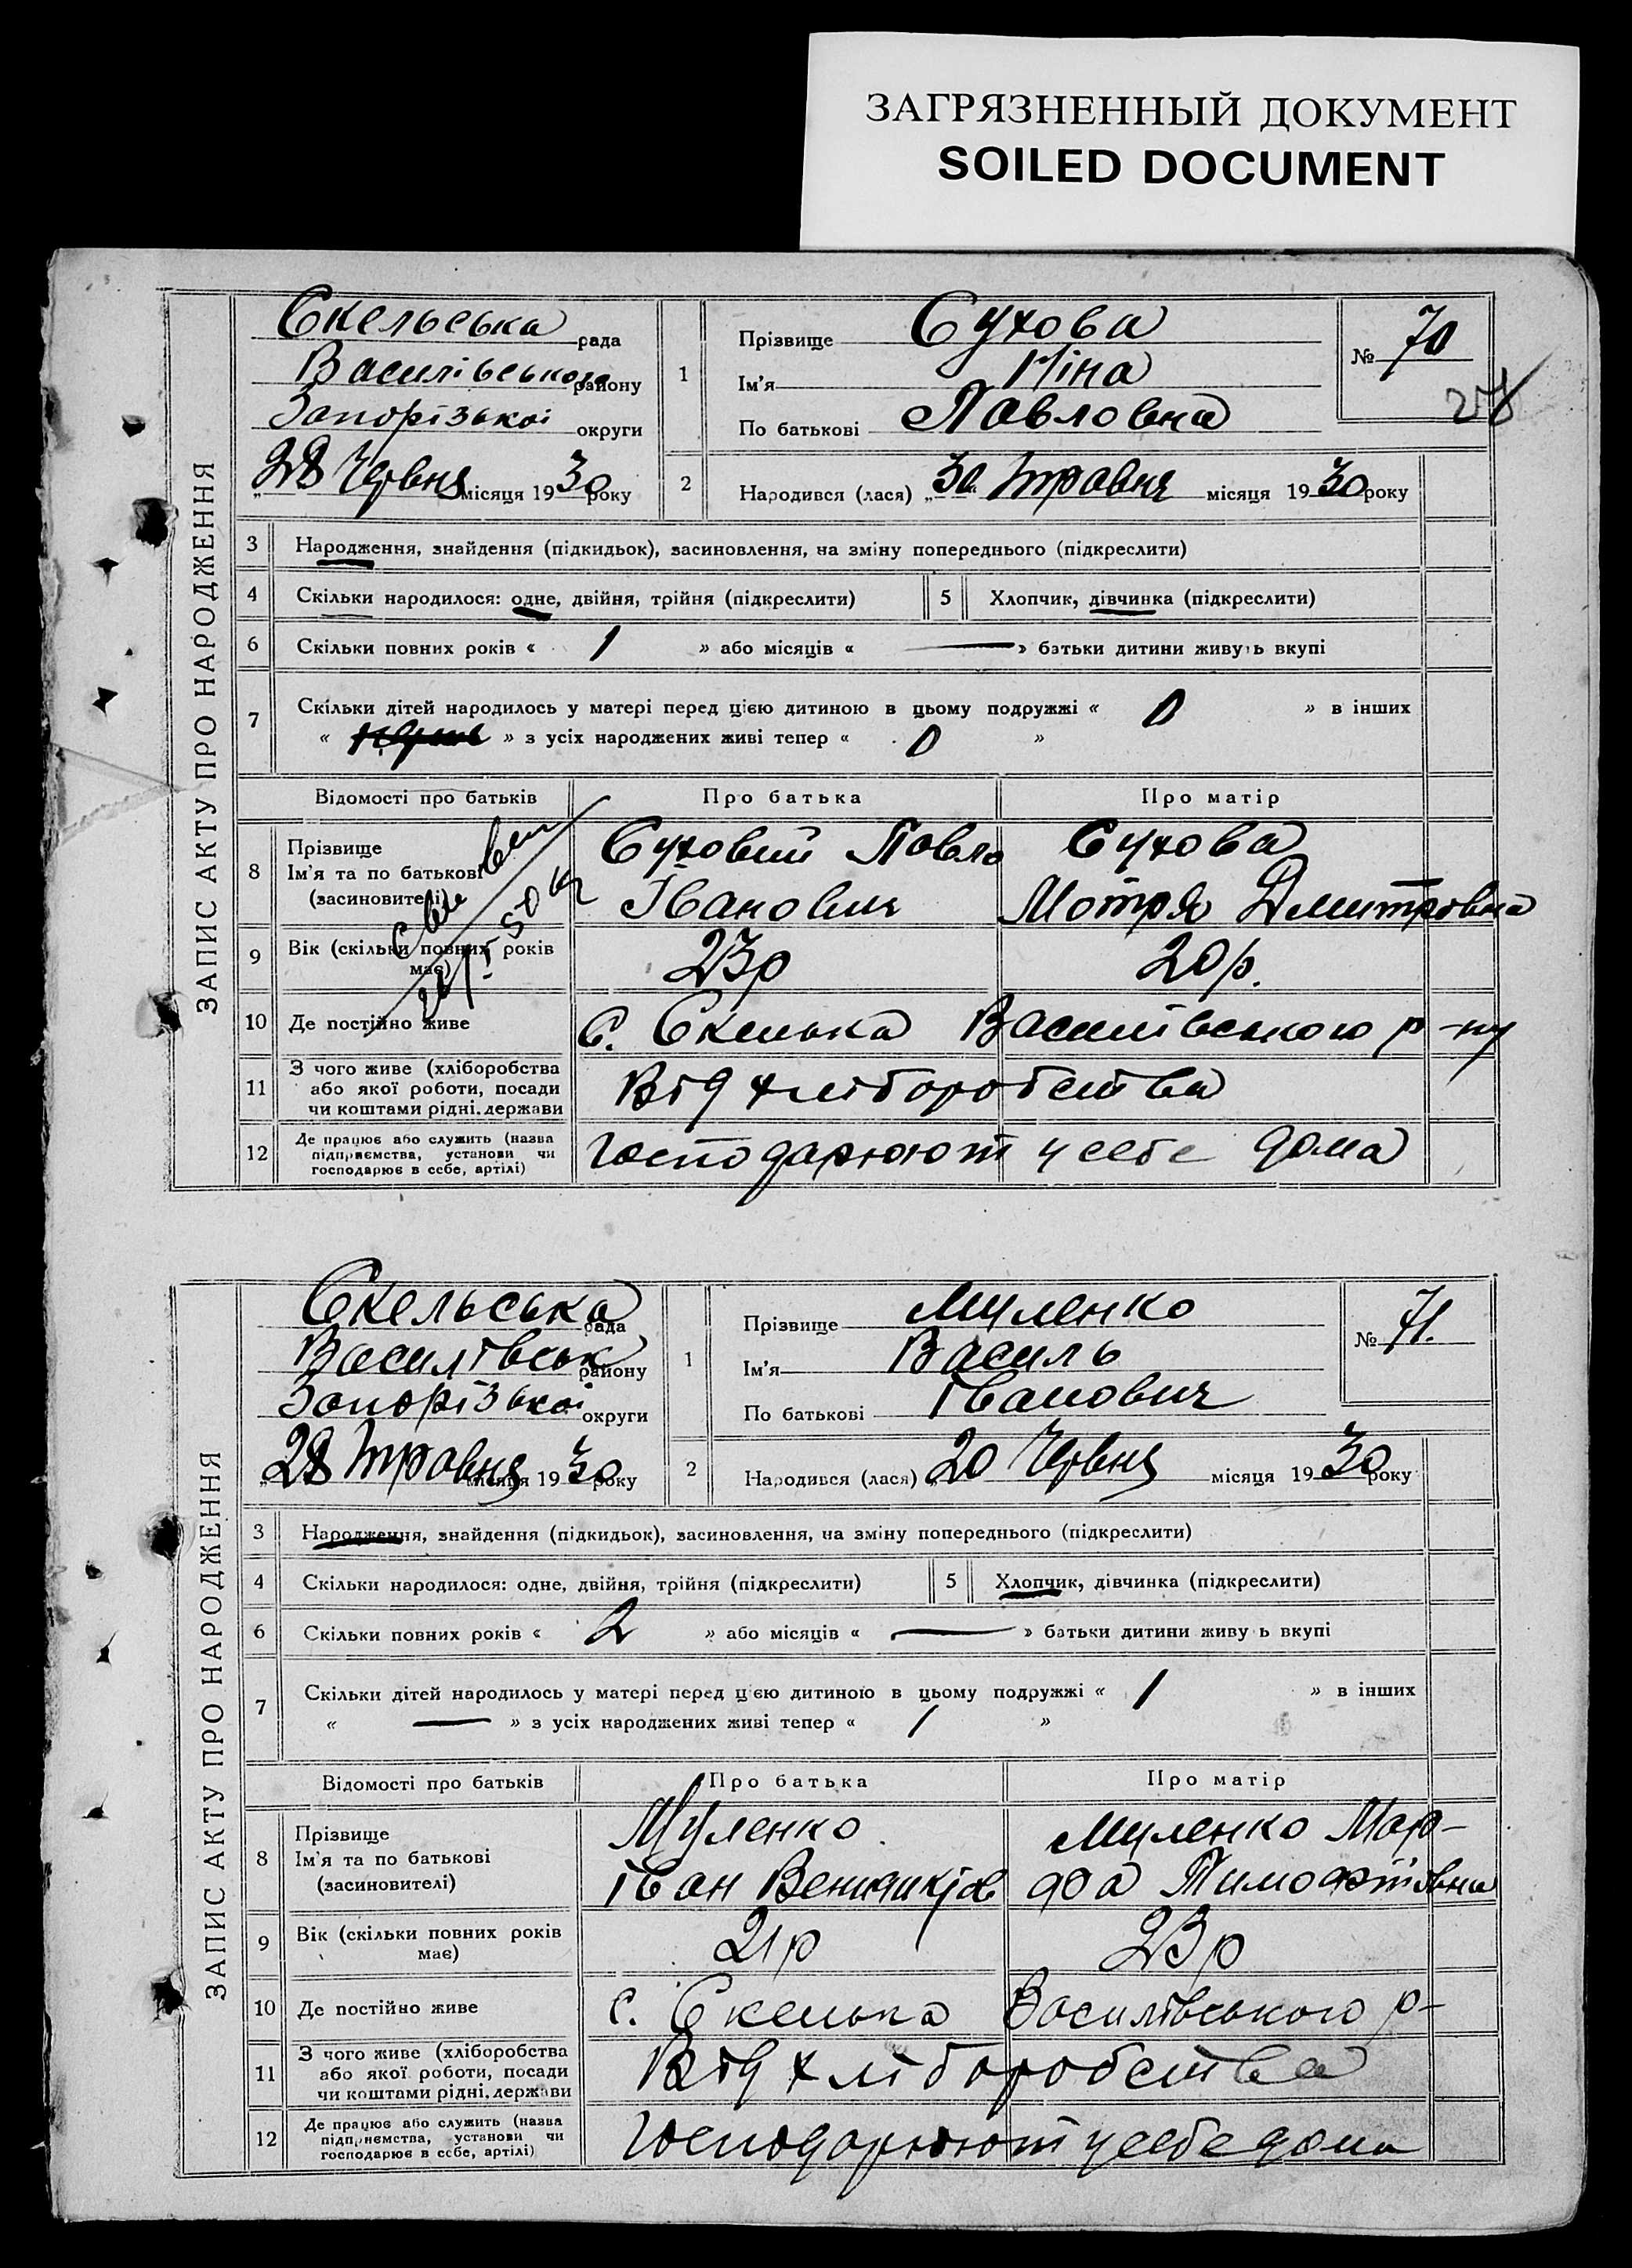 ЗАГРЯЗНЕННЫЙ ДОКУМЕНТ
SOILED DOCUMENT
ЗАПИС АКТУ ПРО НАРОДЖЕННЯ
Скельська рада
Василівського району
Запорізькоі округи
„28 Червня місяця 1930 року
1
Прізвище Сухова
Ім’я Ніна
По батькові Павловна
№ 70
28
2
Народився (лася) „30 травня місяця 1930 року
3 Народження, знайдення (підкидьок), засиновлення, на зміну попереднього (підкреслити)
4 Скільки народилося: одне, двійня, трійня (підкреслити) 5 Хлопчик, дівчинка (підкреслити)
6 Скільки повних років « 1 » або місяців « — » батьки дитини живуть вкупі
7 Скільки дітей народилось у матері перед цією дитиною в цьому подружжі « 0 » в інших
« » з усіх народжених живі тепер « 0 »
Відомості про батьків Про батька Про матір
8 Прізвище
Ім’я та по батькові
(засиновителі)
Суховий Павло
Іванович
Сухова
Мотря Дмитровна
9 Вік (скільки повних років
має)
23р 20р.
10 Де постійно живе с. Скелька Василівського р-ну
11 З чого живе (хліборобства
або якої роботи, посади
чи коштами рідні, держави
Від хліборобства
12 Де працює або служить (назва
підприємства, установи чи
господарює в себе, артілі)
Господарюют у себе дома
ЗАПИС АКТУ ПРО НАРОДЖЕННЯ
Скельська рада
Василівськ району
Запорізькоі округи
„28 травня місяця 1930 року
1
Прізвище Муленко
Ім’я Василь
По батькові Іванович
№ 71.
2
Народився (лася) „20 Червня місяця 1930 року
3 Народження, знайдення (підкидьок), засиновлення, на зміну попереднього (підкреслити)
4 Скільки народилося: одне, двійня, трійня (підкреслити) 5 Хлопчик, дівчинка (підкреслити)
6 Скільки повних років « 2 » або місяців « — » батьки дитини живу ь вкупі
7 Скільки дітей народилось у матері перед цією дитиною в цьому подружжі « 1 » в інших
« — » з усіх народжених живі тепер « 1 »
Відомості про батьків Про батька Про матір
8 Прізвище
Ім’я та по батькові
(засиновителі)
Муленко
Іван
Муленко Мар-
фа Тимофіївна
9 Вік (скільки повних років
має)
21р 23р
10 Де постійно живе с. Скелька Василівського р-
11 З чого живе (хліборобства
або якої роботи, посади
чи коштами рідні, держави
Від хліборобства
12 Де працює або служить (назва
підприємства, установи чи
господарює в себе, артілі)
Господарюют у себе дома